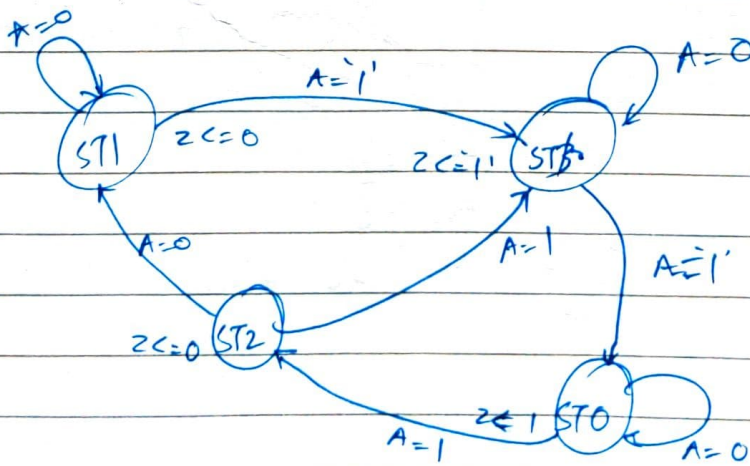 A=0
A='1'
A=0
ST1
Z<=0
Z<='1'
ST3
A=0
A=1
A='1'
Z<=0
ST2
Z<=1
ST0
A=1
A=0